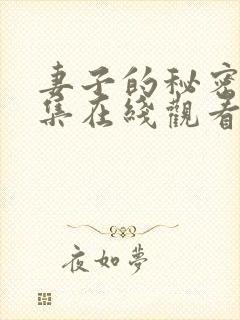 妻子的秘密
集在綫觀看
夜如夢